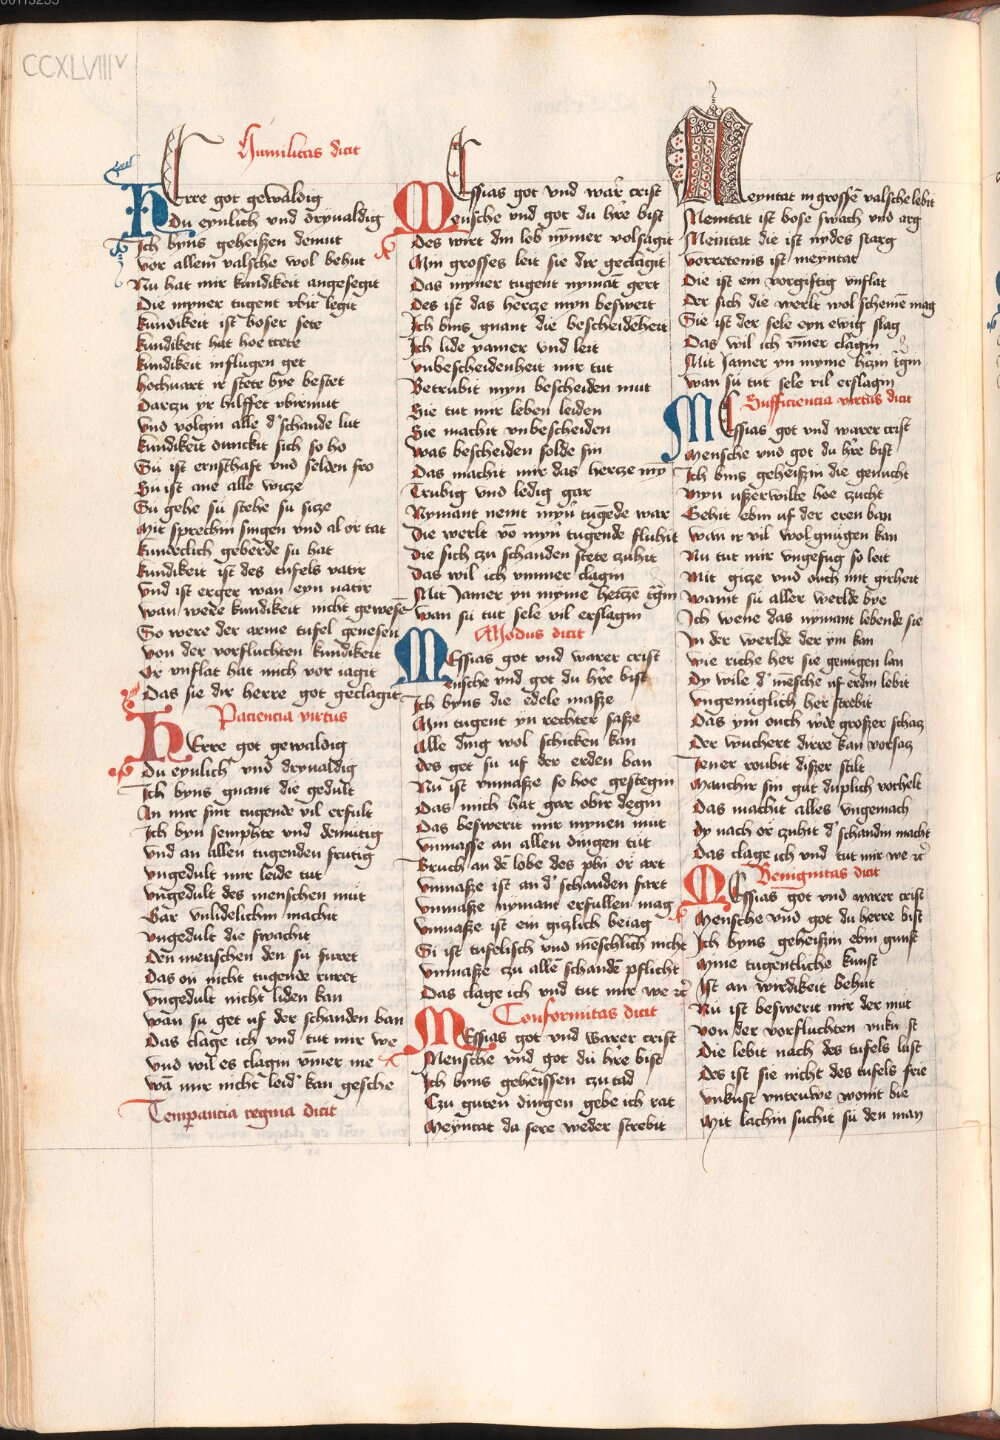 CCXLVIII v
Humilitas dicit
Herre got gewaldig
Du eynlich und dryualdig
Ich byns geheißen demut
vor allem valsche wol behut
Nu hat mir kundikeit angesegit
Die myner tugent vbir legit
kundikeit ist boser sete
kundikeit hat hoe trete
kundikeit influgen get
hochuart ir stete bye bestet
Darczu yr hilffet vbirmut
Und volgin alle d' schande lut
kundikeit dunckit sich so ho
Su ist ernsthaft und selden fro
Su ist ane alle wicze
Su gehe su stehe su sicze
Mit sprechin singen vnd al or tat
kundeclich geberde su hat
kundikeit ist des tufels vatir
Und ist erger wan eyn natir
wan wede kundikeit nicht gewesē
So were der arme tufel genesen
von der vorfluchten kundikeit
Or vnflat hat mich vor iagit
Das sie dir herre got geclagit
Paciencia virtus
HErre got gewaldig
Du eynlich und dryualdig
Ich byns gnant die gedult
An mir sint tugende vil erfult
Ich byn semphte und demutig
Und an allen tugenden frutig
ungedult mir leide tut
ungedult des menschen mut
Gar vnlidelichin machit
ungedult die swachit
Den menschen den su furet
Das on nicht tugende ruret
Ungedult nicht liden kan
wan su get uf der schanden ban
Das clage ich und tut mir we
Und wil es clagin vm̄er me
wā mir nicht leid' kan gesche
Temperancia regina dicit
MEssias got vnd war' crist
Mensche vnd got du h're bist
Des wirt din lob nymer volsagit
Myn grosses leit sie dir geclagit
Das myner tugent nymāt gert
Des ist das hercze myn beswert
Ich bins gnant die bescheidēheit
Ich lide yamer und leit
vnbescheidenheit mir tut
Betrubit myn bescheiden mut
Sie tut mir leben leiden
Sie machit vnbescheiden
Was bescheiden solde sin
Das machit mir das hercze myn
Trubig und ledig gar
Nymant nemt myn' tugēde war
Die werlt vō myn' tugende fluhit
Die sich czu schanden stete zuhit
Das wil ich vmmer clagin
Mit Jamer yn myme hertzē t'gin
Wan su tut sele vil erslagin
Modus dicit
MEssias got und warer crist
Mensche vnd got du h're bist
Ich byns die edele maße
Myn tugent yn rechter saße
Alle ding wol schicken kan
des get su uf der erden ban
Nu ist vnmaße so hoe gestegin
Das mich hat gar obir degin
Das beswerit mir mynen mut
Vnmasse an allen dingen tut
Bruch an dē lobe des
Vnmaße ist an d' schanden fart
Vnmaße nymant erfullen mag
Vnmaße ist ein gizlich beiag
Si ist tufelisch und mēschlich nicht
Vnmaße czu allē schandē pflicht
Das clage ich und tut mir we
Conformitas dicit
MEssias got und warer crist
Mensche vnd got du h're bist
Ich byns geheissen
Czu guten dingen gebe ich rat
Meyntat da sere weder strebit
Meyntat in grossē valsche lebit
Meintat ist bose swach und arg
Meintat die ist nydes starg
vorretenis ist meyntat
Die ist ein vorgiftig vnflat
Der sich die werlt wol schemē mag
Sie ist der sele eyn ewig slag
Das wil ich vm̄er clagin
Mit Jamer yn myme h'czin t'gin
wan su tut sele vil erslagin
Sufficiencia virtus dicit
MEssias got vnd warer crist
Mensche vnd got du h're bist
Ich bins geheißin die genucht
Myn ußerwilte hoe zucht
Gehit ebin uf der eren ban
Wan ir vil wol gnugen kan
Nu tut mir vngefug so leit
Mit gicze und ouch mit girheit
wamt su aller werlde bye
Ich wene das nymant lebende sie
In der werlde der ym kan
wie riche her sie genugen lan
Dy wile d' mēsche uf erdin lebit
vngenuglich her strebit
Das ym ouch w'de großer schatz
Der wuchert dirre kan vorsatz
Jener roubit dißer stilt
Manchir sin gut duplich vorhelt
Das machit alles vngemach
Dy nach or czuhit d' schandin macht
Das clage ich und tut mir we
Benignitas dicit
MEssias got vnd warer crist
Mensche vnd got du herre bist
Ich byns geheißin ebin gunst
Myme tugentliche kunst
Ist an wirdikeit behut
Nu ist beswerit mir der mut
von der vorfluchten
Die lebit nach des tufels lust
Des ist sie nicht des tufels frie
Vnkust vntruwe wonit bie
Mit lachin suchit su den man